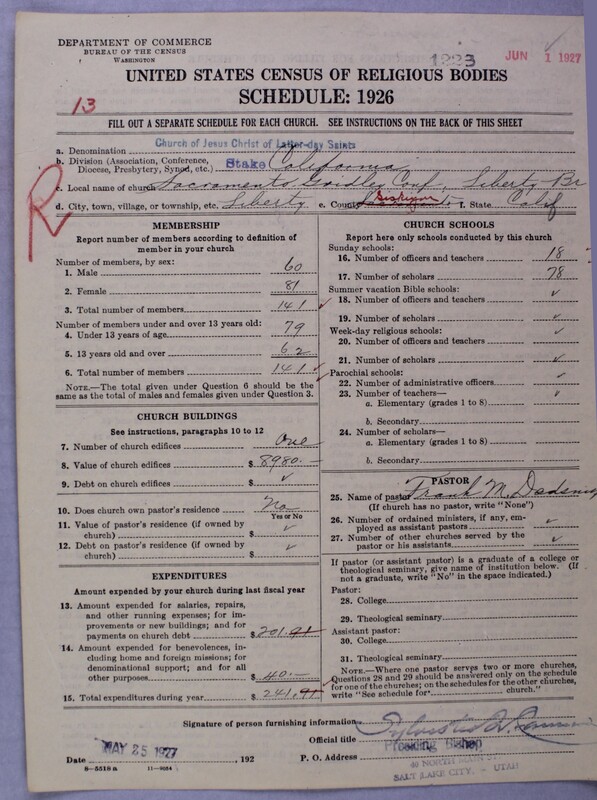 DEPARTMENT OF COMMERCE
BUREAU OF THE CENSUS
WASHINGTON
1223
JUN 1 1927
UNITED STATES CENSUS OF RELIGIOUS BODIES
SCHEDULE: 1926
13
FILL OUT A SEPARATE SCHEDULE FOR EACH CHURCH. SEE INSTRUCTIONS ON THE BACK OF THIS SHEET
a. Denomination Church of Jesus Christ of Latter-day Saints
b. Division (Association, Conference, Diocese, Presbytery, Synod, etc.) Stake California
c. Local name of church Sacramento Gridley Conf, Liberty Br
d. City, town, village, or township, etc. Liberty e. County f. State Calif
R
MEMBERSHIP
Report number of members according to definition of member in your church
Number of members, by sex:
1. Male 60
2. Female 81
3. Total number of members 141 ✓
Number of members under and over 13 years old:
4. Under 13 years of age 79
5. 13 years old and over 62
6. Total number of members 141 ✓
NOTE.—The total given under Question 6 should be the same as the total of males and females given under Question 3.
CHURCH BUILDINGS
See instructions, paragraphs 10 to 12
7. Number of church edifices One
8. Value of church edifices $ 8980.—
9. Debt on church edifices $ ✓
10. Does church own pastor's residence No
Yes or No
11. Value of pastor's residence (if owned by church) $ ✓
12. Debt on pastor's residence (if owned by church) $ ✓
EXPENDITURES
Amount expended by your church during last fiscal year
13. Amount expended for salaries, repairs, and other running expenses; for improvements or new buildings; and for payments on church debt $ 201.91
14. Amount expended for benevolences, including home and foreign missions; for denominational support; and for all other purposes $ 40.—
15. Total expenditures during year $ 241.91 ✓
CHURCH SCHOOLS
Report here only schools conducted by this church
Sunday schools:
16. Number of officers and teachers 18
17. Number of scholars 78
Summer vacation Bible schools:
18. Number of officers and teachers ✓
19. Number of scholars ✓
Week-day religious schools:
20. Number of officers and teachers ✓
21. Number of scholars ✓
Parochial schools:
22. Number of administrative officers ✓
23. Number of teachers— ✓
a. Elementary (grades 1 to 8)
b. Secondary
24. Number of scholars—
a. Elementary (grades 1 to 8)
b. Secondary
PASTOR
25. Name of pastor Frank M.
(If church has no pastor, write "None")
26. Number of ordained ministers, if any, employed as assistant pastors ✓
27. Number of other churches served by the pastor or his assistants ✓
If pastor (or assistant pastor) is a graduate of a college or theological seminary, give name of institution below. (If not a graduate, write "No" in the space indicated.)
Pastor:
28. College
29. Theological seminary
Assistant pastor:
30. College
31. Theological seminary
NOTE.—Where one pastor serves two or more churches, Questions 28 and 29 should be answered only on the schedule for one of the churches; on the schedules for the other churches, write "See schedule for church."
Signature of person furnishing information
Official title Presiding Bishop
Date MAY 25 1927, 192 P. O. Address 40 NORTH MAIN ST
SALT LAKE CITY, - UTAH
8—5518 a 11—9034